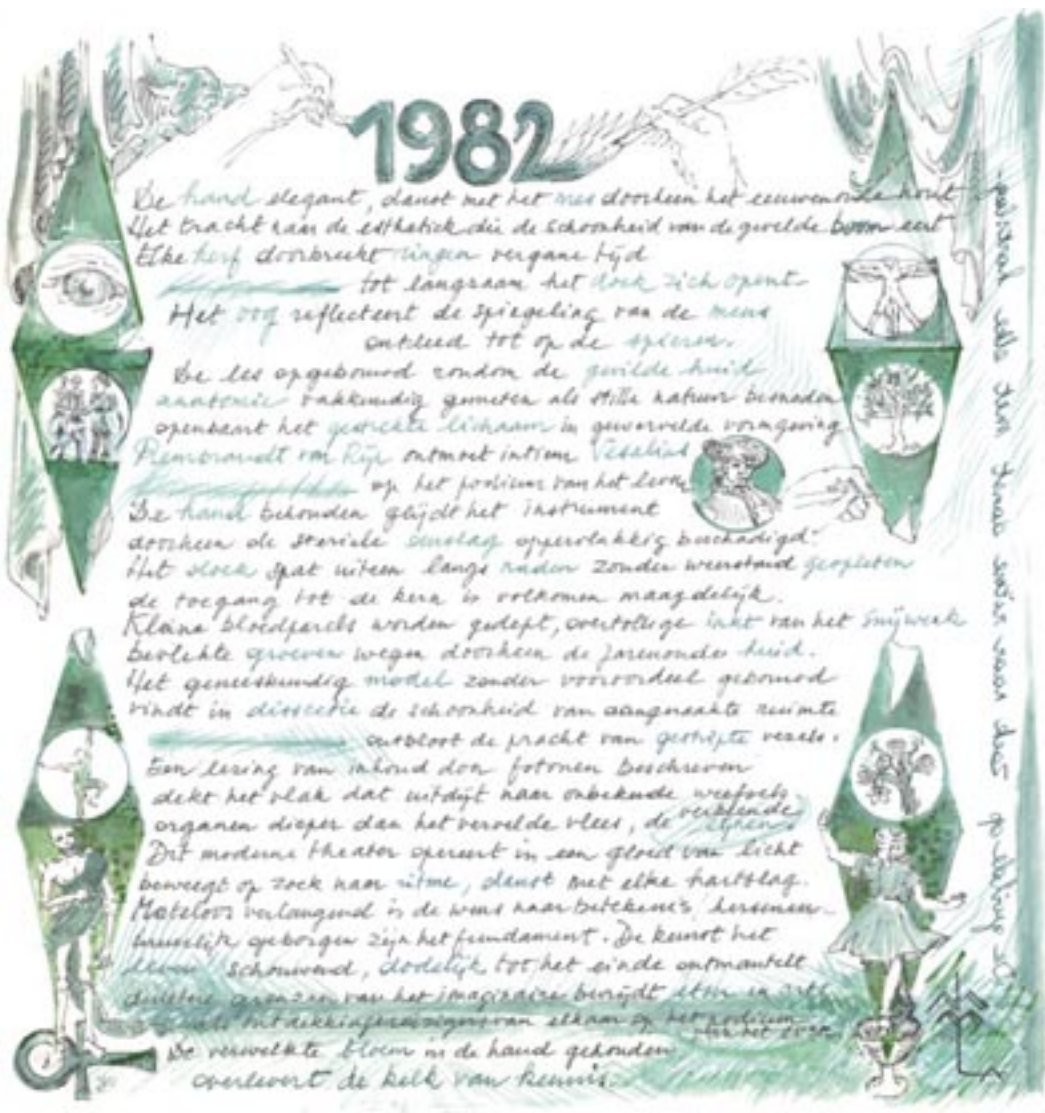 1982
De hand elegant, danst met het mes doorheen het eeuwenoude hout
Het tracht naar de esthetiek die de schoonheid van de gevelde boom eert
Elke kerf doorbreekt ringen vergane tijd
tot langzaam het doek zich opent.
Het oog reflecteert de spiegeling van de mens
ontleed tot op de spieren.
De les opgebouwd rondom de gevilde huid
anatomie vakkundig gemeten als stille natuur besneden
openbaart het gestrekte lichaam in gewervelde vormgeving
Rembrandt van Rijn ontmoet intiem Vesalius
op het podium van het leven
De hand behouden glijdt het instrument
doorheen de steriele omslag oppervlakkig beschadigd.
Het doek spat uiteen langs naden zonder weerstand gespleten
de toegang tot de kern is volkomen maagdelijk.
Kleine bloedparels worden gedept, overtollige inkt van het snijwerk
bevlekte groeven wegen doorheen de jarenoude huid.
Het geneeskundig model zonder vooroordeel gebouwd
vindt in dissectie de schoonheid van aangeraakte ruimte
ontbloot de pracht van gestripte vezels.
Een lezing van inhoud door fotonen beschreven
dekt het vlak dat uitdijt naar onbekende weefsels
organen dieper dan het vervelde vlees, de verkennende lijnen.
Dit moderne theater opereert in een gloed van licht
beweegt op zoek naar ritme, danst met elke hartslag.
Mateloos verlangend is de wens naar betekenis hersenen
geborgen zijn het fundament. De kunst het
leven schouwend, dodelijk tot het einde ontmantelt
duistere grenzen van het imaginaire bevrijdt
als ontdekkingsreizigers van elkaar op het podium
van het leven
De verwelkte bloem in de hand gehouden
overlevert de kelk van kennis.
op zoek naar ritme danst met elke hartslag.